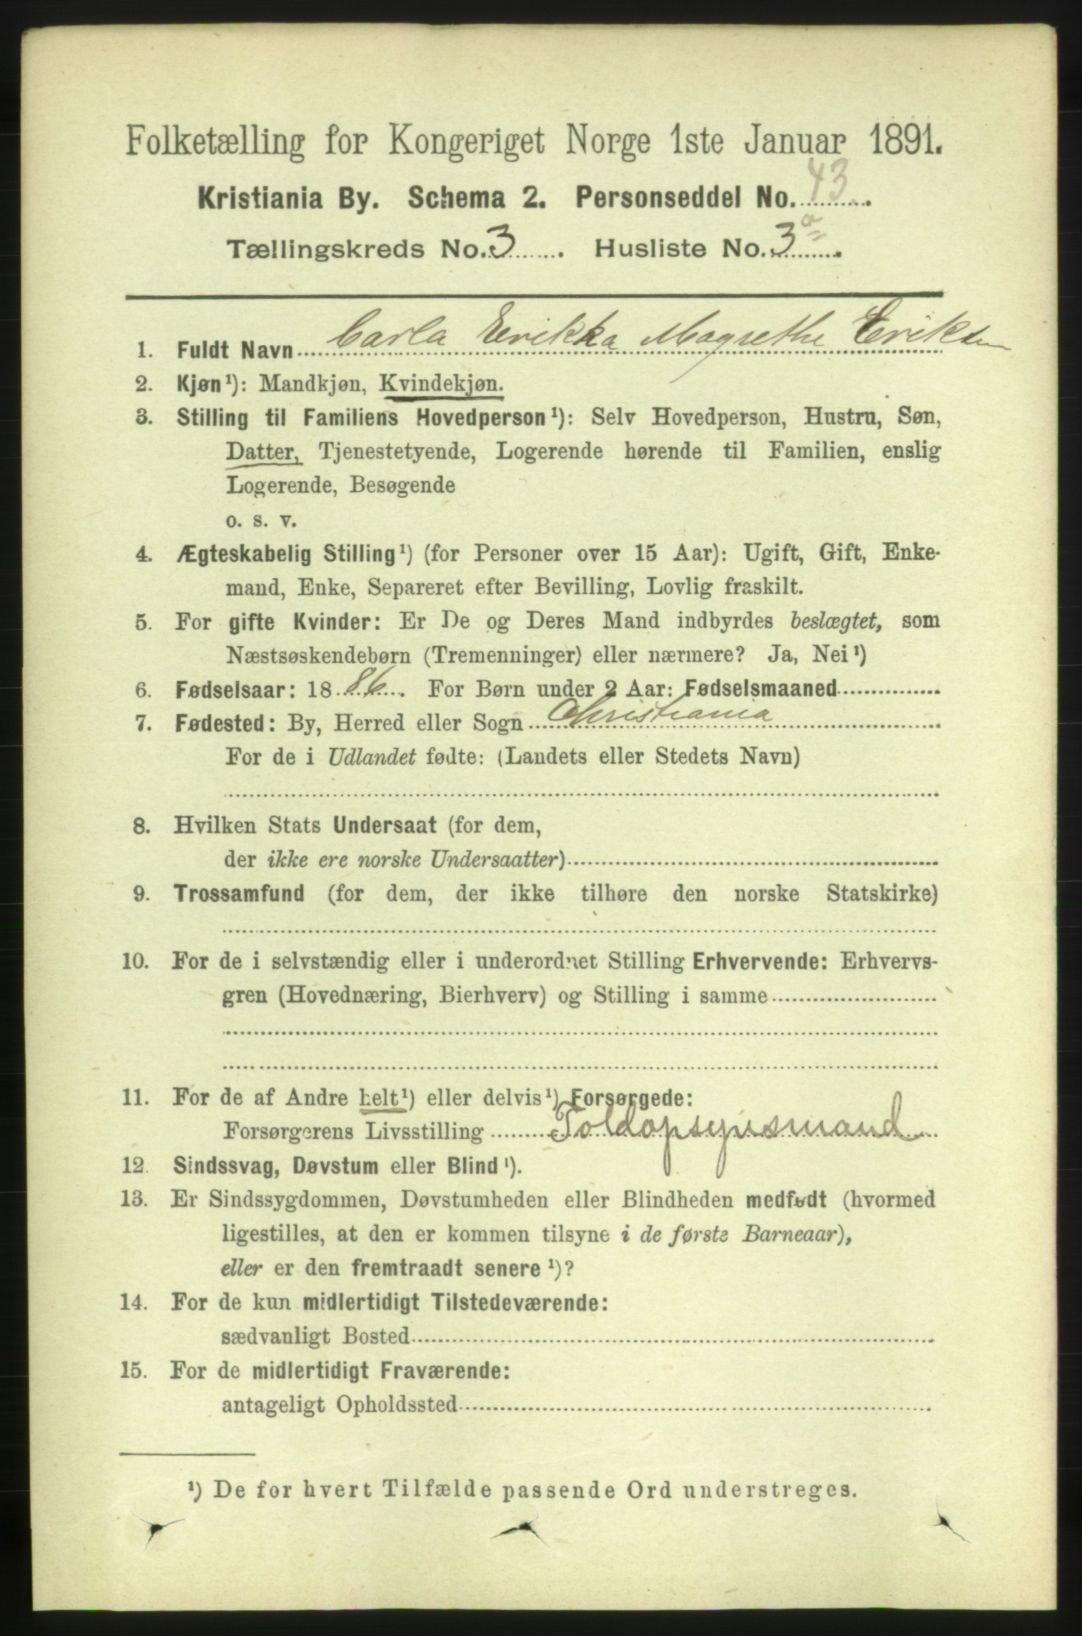 Folketælling for Kongeriget Norge 1ste Januar 1891.
Kristiania By. Schema 2. Personseddel No. 43
Tællingskreds No. 3. Husliste No. 3a.
1. Fuldt Navn Carla Erikka Magrethe Eriksen
2. Kjøn¹): Mandkjøn, Kvindekjøn.
3. Stilling til Familiens Hovedperson¹): Selv Hovedperson, Hustru, Søn,
Datter, Tjenestetyende, Logerende hørende til Familien, enslig
Logerende, Besøgende
o. s. v.
4. Ægteskabelig Stilling¹) (for Personer over 15 Aar): Ugift, Gift, Enke-
mand, Enke, Separeret efter Bevilling, Lovlig fraskilt.
5. For gifte Kvinder: Er De og Deres Mand indbyrdes beslægtet, som
Næstsøskendebørn (Tremenninger) eller nærmere? Ja, Nei¹)
6. Fødselsaar: 1886. For Børn under 2 Aar: Fødselsmaaned
7. Fødested: By, Herred eller Sogn Christiania
For de i Udlandet fødte: (Landets eller Stedets Navn)
8. Hvilken Stats Undersaat (for dem,
der ikke ere norske Undersaatter)
9. Trossamfund (for dem, der ikke tilhøre den norske Statskirke)
10. For de i selvstændig eller i underordnet Stilling Erhvervende: Erhvervs-
gren (Hovednæring, Bierhverv) og Stilling i samme
11. For de af Andre helt¹) eller delvis¹) Forsørgede:
Forsørgerens Livsstilling Toldopsynsmand
12. Sindssvag, Døvstum eller Blind¹).
13. Er Sindssygdommen, Døvstumheden eller Blindheden medfødt (hvormed
ligestilles, at den er kommen tilsyne i de første Barneaar),
eller er den fremtraadt senere¹)?
14. For de kun midlertidigt Tilstedeværende:
sædvanligt Bosted
15. For de midlertidigt Fraværende:
antageligt Opholdssted
¹) De for hvert Tilfælde passende Ord understreges.